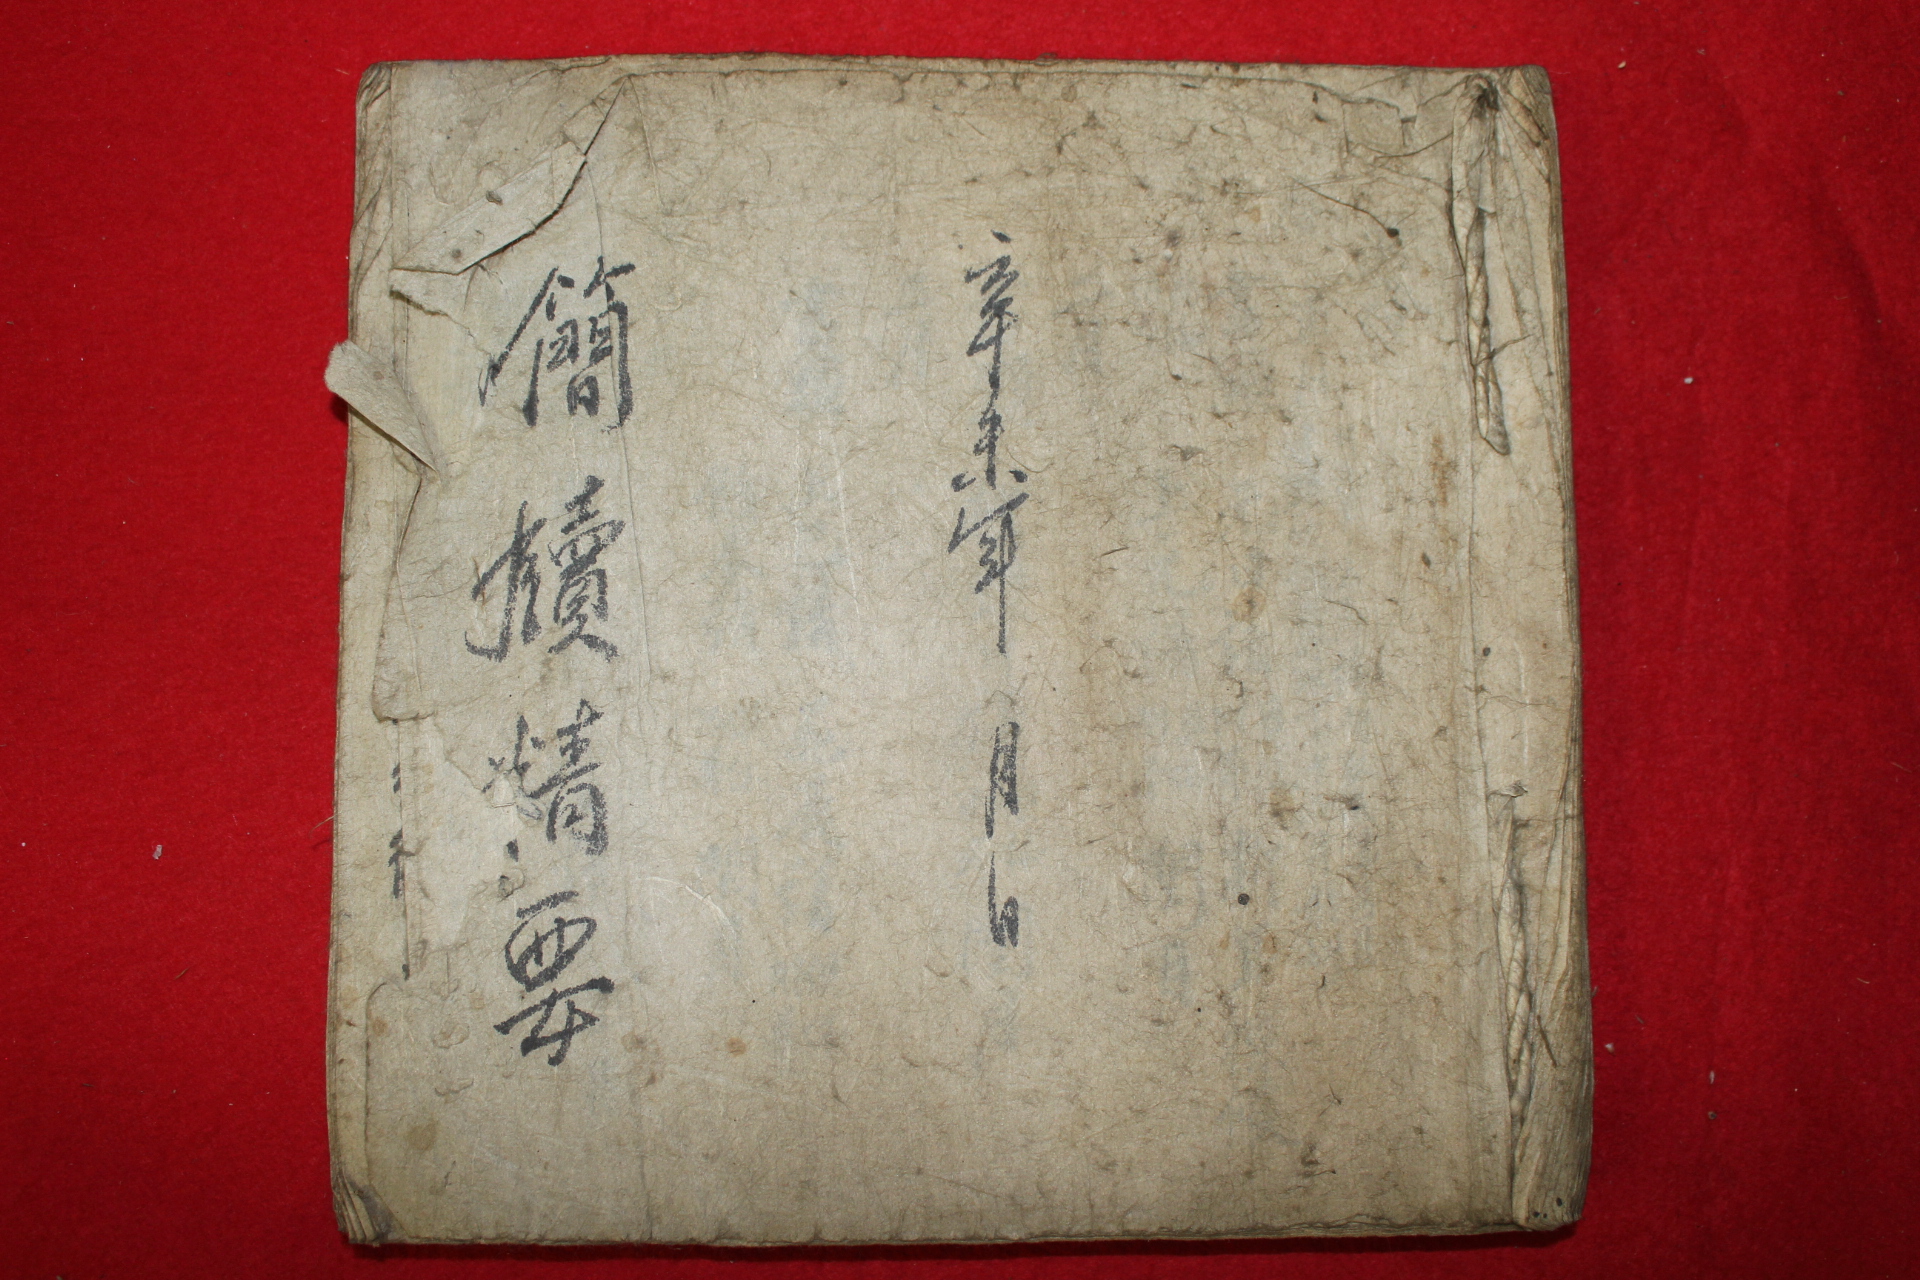 辛未年 月 日
簡牘精要